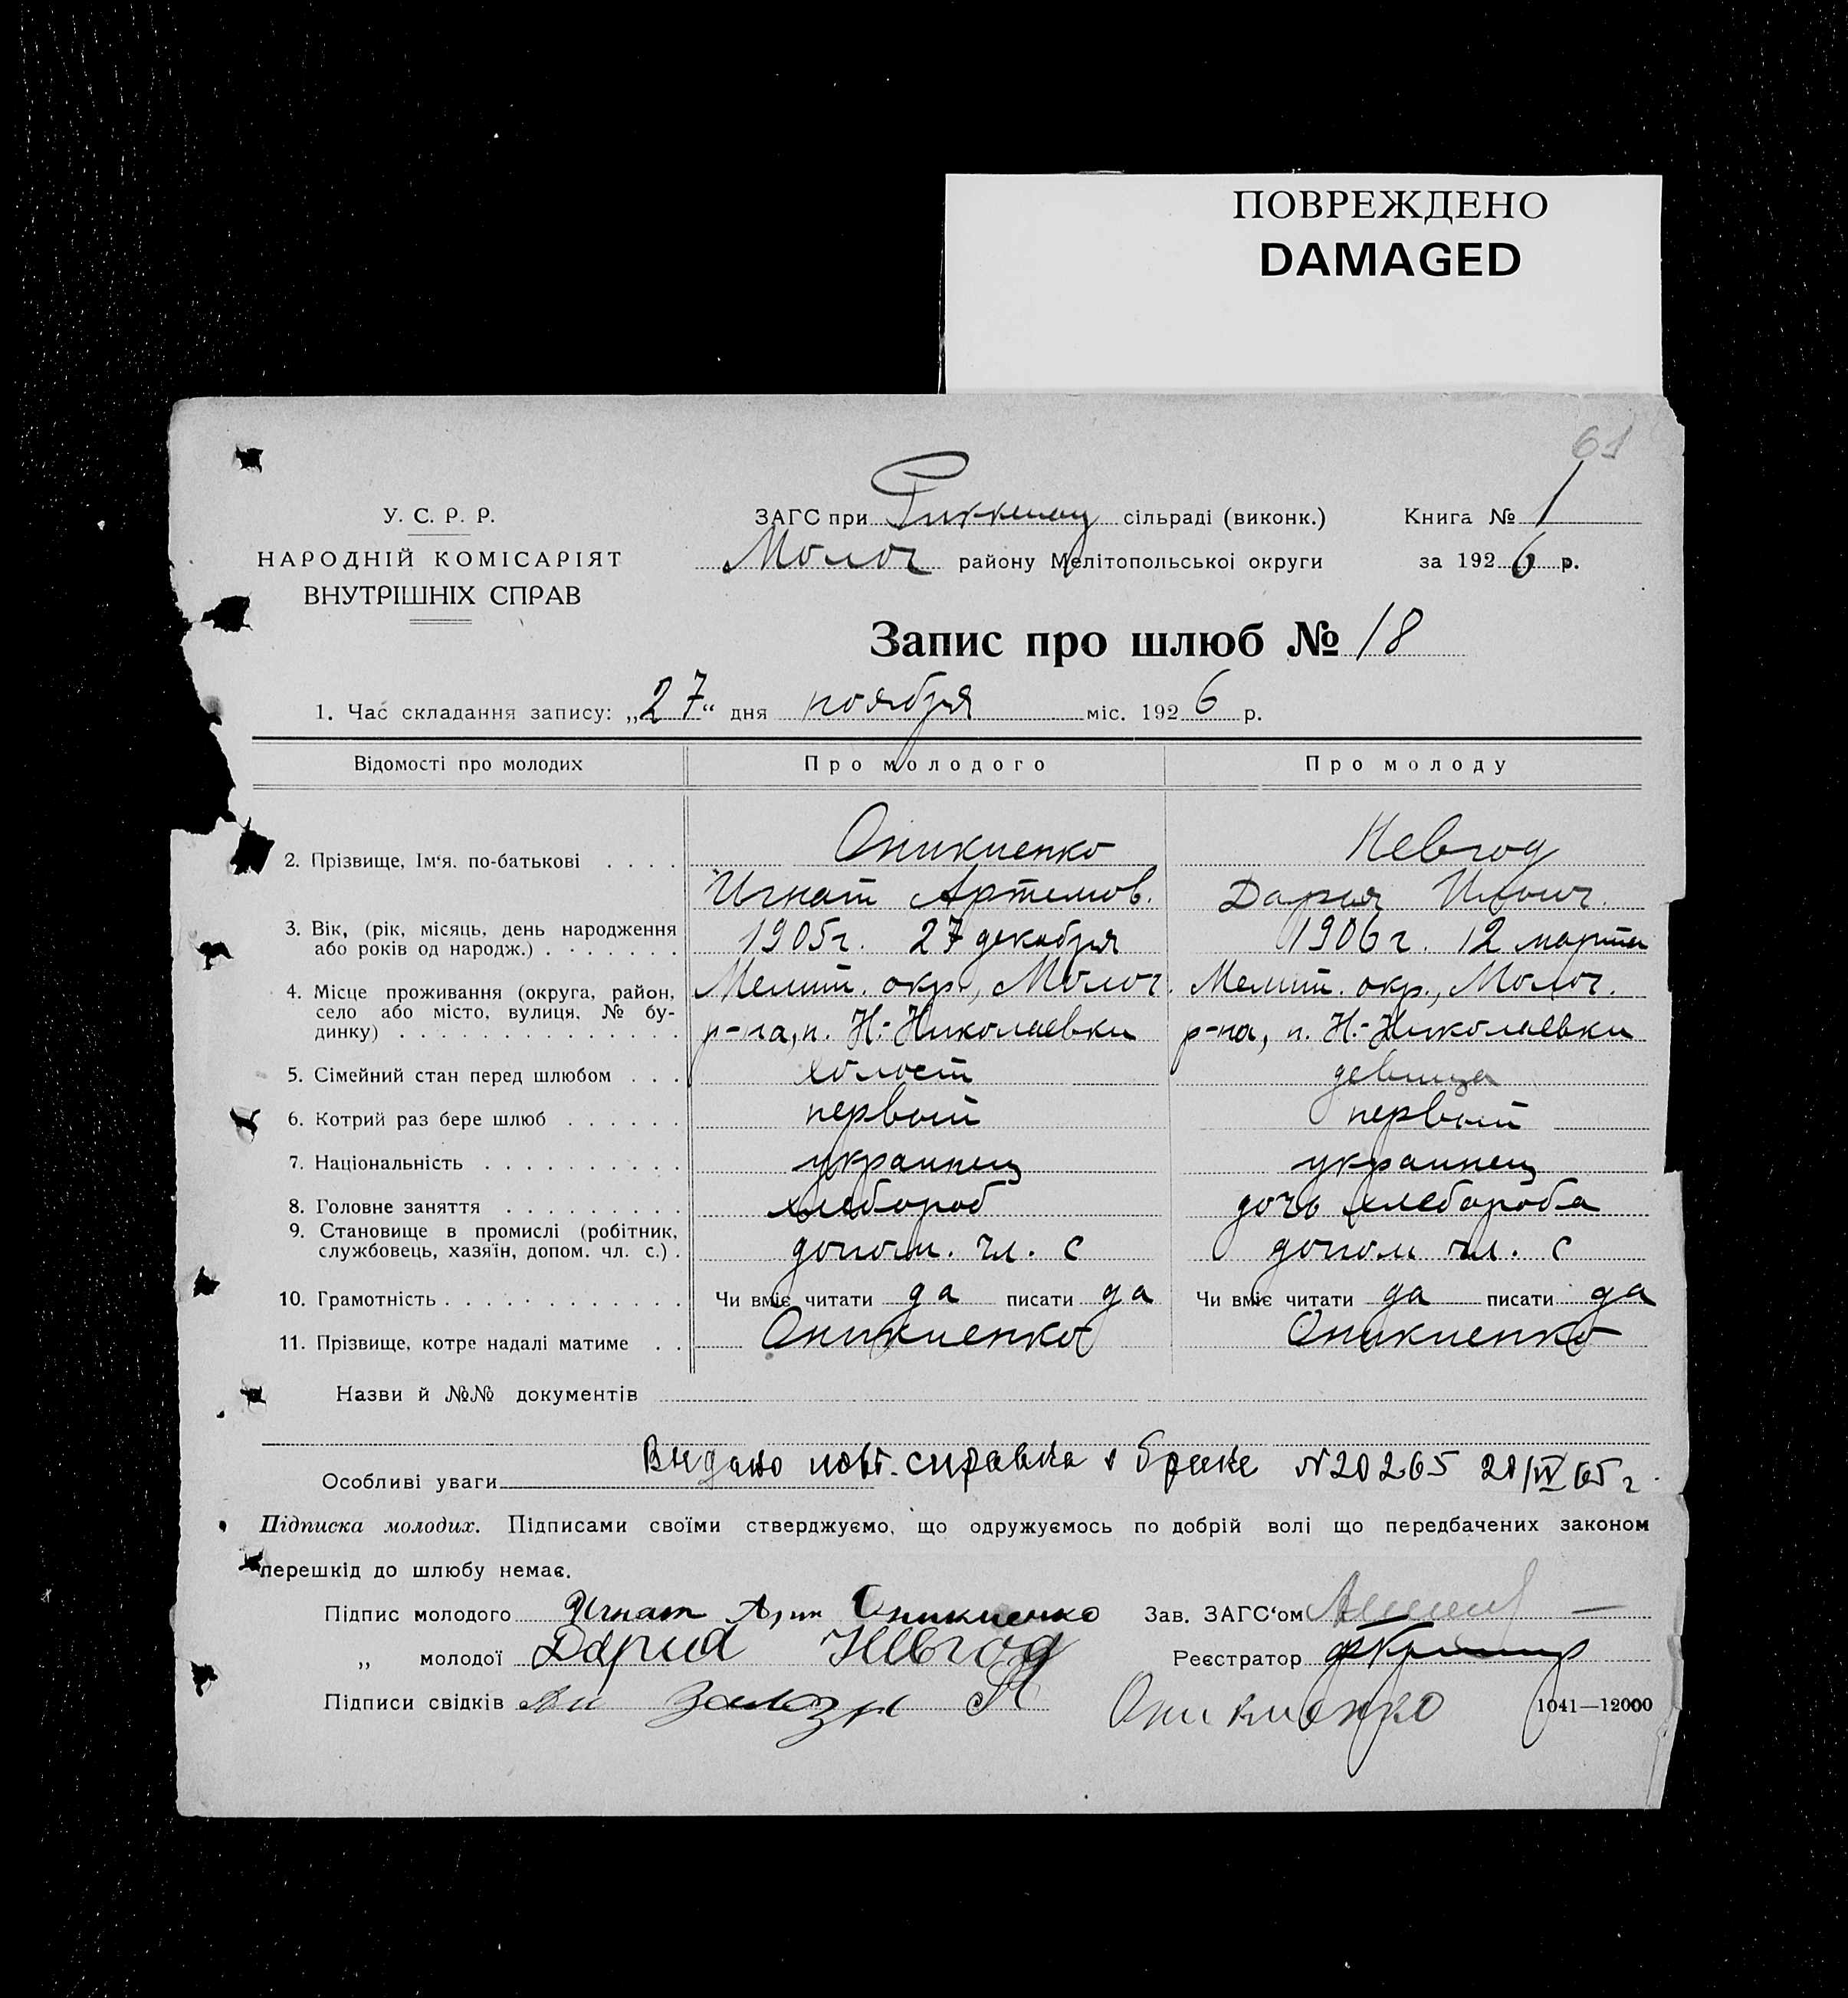 ПОВРЕЖДЕНО
DAMAGED
61
У. С. Р. Р.
НАРОДНІЙ КОМІСАРІЯТ
ВНУТРІШНІХ СПРАВ
ЗАГС при Риккенау сільраді (виконк.)
Молоч району Мелітопольської округи
Книга № 1
за 1926 р.
Запис про шлюб № 18
1. Час складання запису: „27“ дня ноября міс. 1926 р.
Відомості про молодих Про молодого Про молоду
2. Прізвище, Ім'я. по-батькові . . . . Оникиенко Невгод
Игнат Артемов. Дария
3. Вік, (рік, місяць, день народження 1905г. 27 декабря 1906г. 12 марта
або років од народж.) . . . . . . .
4. Місце проживання (округа, район, Мелит. окр., Молоч. Мелит. окр., Молоч.
село або місто, вулиця, № бу-
динку) . . . . . . . . . . . . . . р-на, п. Н.-Николаевки р-на, п. Н.-Николаевки
5. Сімейний стан перед шлюбом . . . холост девица
6. Котрий раз бере шлюб . . . . . . первый первый
7. Національність . . . . . . . . . . украинец украинец
8. Головне заняття . . . . . . . . . хлебороб дочь хлебороба
9. Становище в промислі (робітник,
службовець, хазяїн, допом. чл. с.) . допом. чл. с допом чл. с
10. Грамотність . . . . . . . . . . . . Чи вміє читати да писати да Чи вміє читати да писати да
11. Прізвище, котре надалі матиме . . Оникиенко Оникиенко
Назви й №№ документів
Особливі уваги Видано повт. справка о браке N20265 21/IV 65 г.
Підписка молодих. Підписами своїми стверджуємо, що одружуємось по добрій волі що передбачених законом
перешкід до шлюбу немає.
Підпис молодого Игнат Оникиенко Зав. ЗАГС'ом
„ молодої Дария Невгод Реєстратор
Підписи свідків Оникиенко 1041—12000